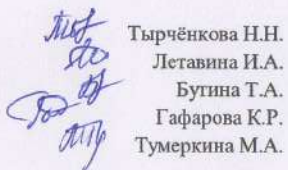 Тырчёнкова Н.Н.
Летавина И.А.
Бутина Т.А.
Гафарова К.Р.
Тумеркина М.А.